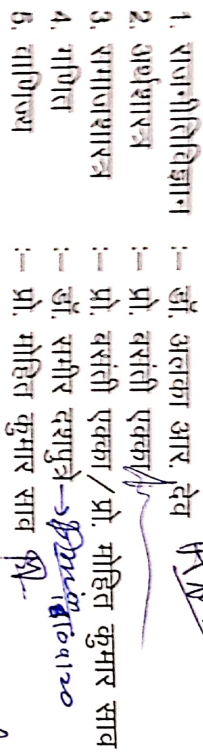 1. राजनीतिविज्ञान :– डॉ. अलका आर. देव
2. अर्थशास्त्र :– प्रो. वसंती एक्का
3. समाजशास्त्र :– प्रो. वसंती एक्का/प्रो. मोहित कुमार साव
4. गणित :– डॉ. समीर दशपुत्रे →
5. वाणिज्य :– प्रो. मोहित कुमार साव